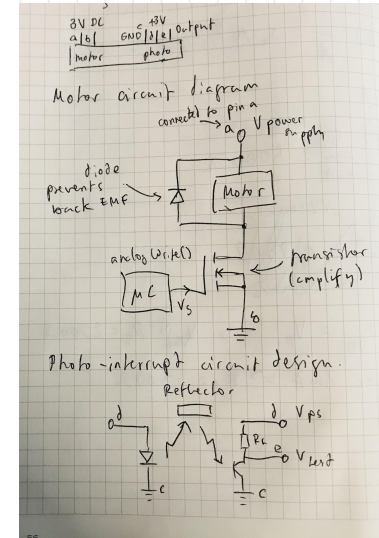 3V DC
a|b| GND|d|e| Output
c +3V
motor photo
Motor circuit diagram
connected to pin a
a V power
supply
diode
prevents
back EMF
Motor
analogWrite()
μC
Vs
transistor
(amplify)
b
Photo-interrupt circuit design.
Reflector
d
d Vps
RL
e
c
c